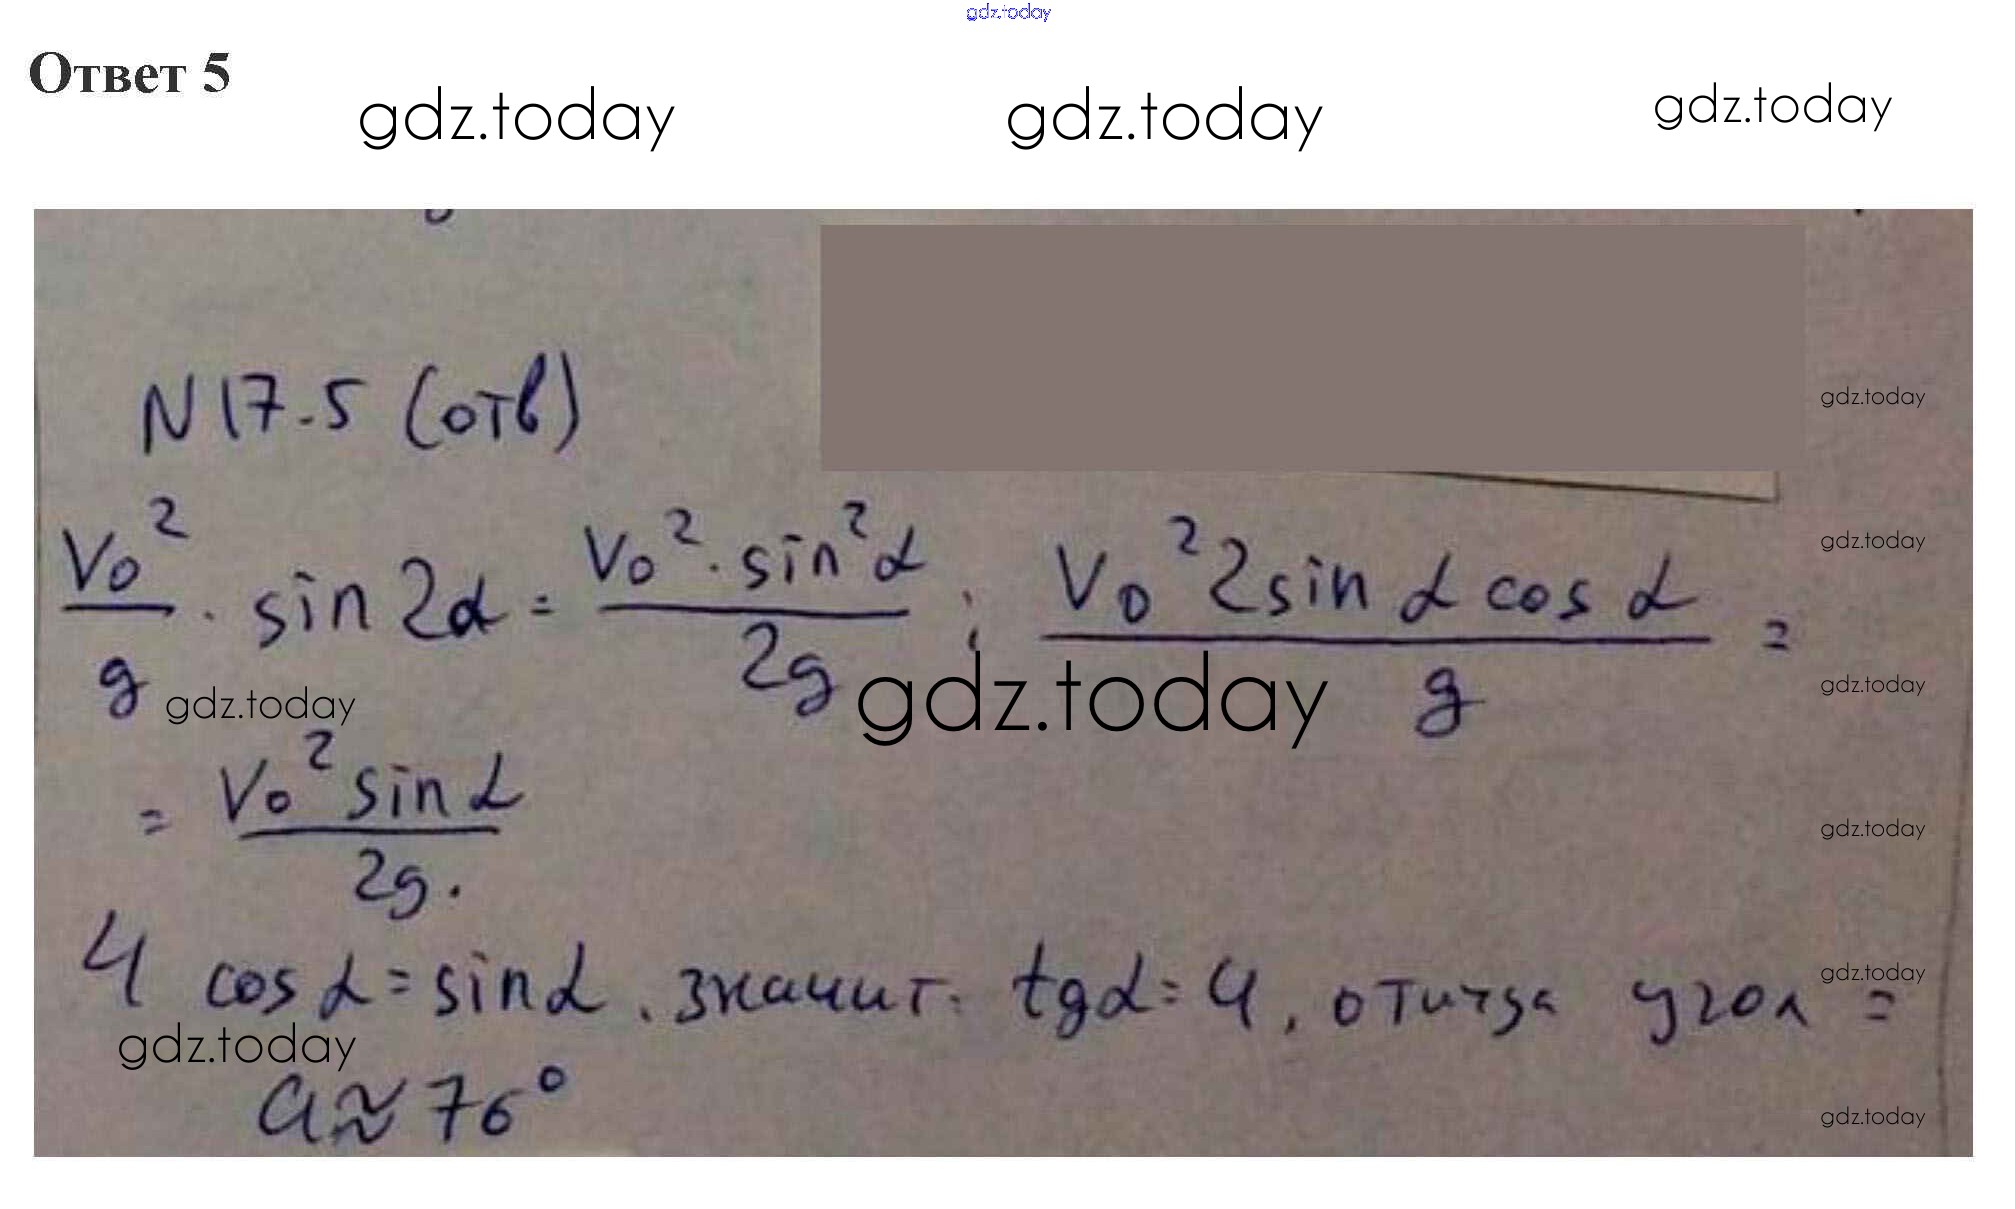 gdz.today
Ответ 5
gdz.today gdz.today gdz.today
N 17.5 (отв)
gdz.today
V₀²/g · sin 2α = V₀² · sin²α / 2g ; V₀² 2 sin α cos α / g =
gdz.today
gdz.today gdz.today gdz.today
= V₀² sin α / 2g.
gdz.today
4 cos α = sin α, значит: tg α = 4, отчуда угол =
gdz.today
gdz.today
a ≈ 76°
gdz.today